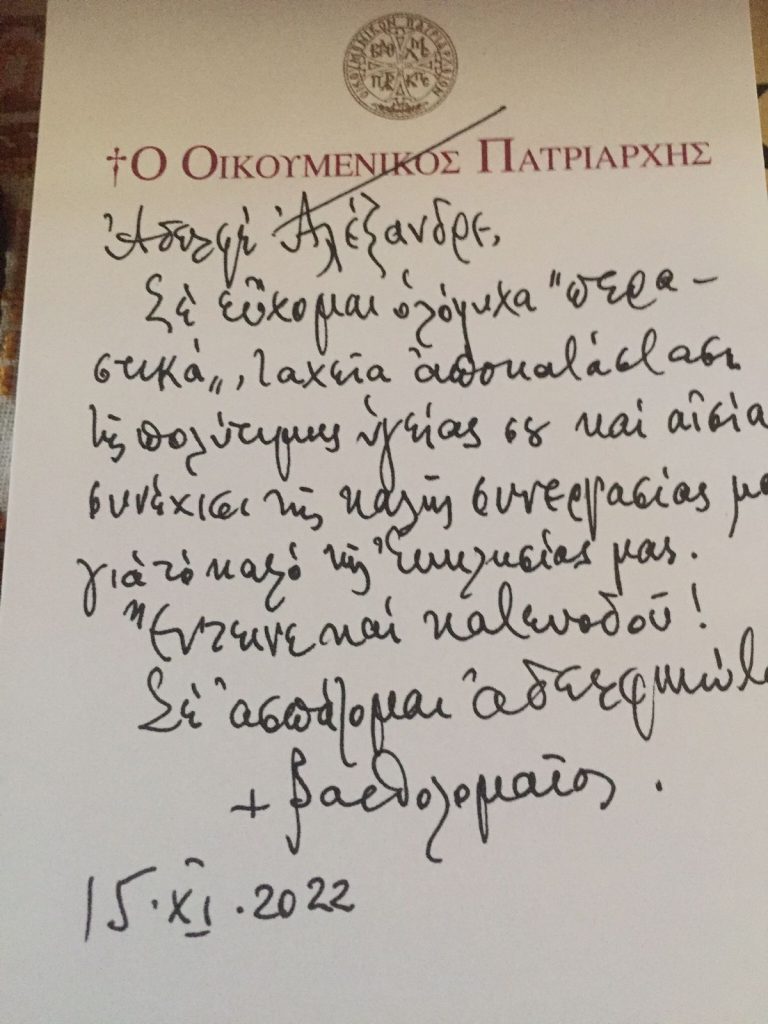 ΟΙΚΟΥΜΕΝΙΚΟΝ ΠΑΤΡΙΑΡΧΕΙΟΝ
†Ο ΟΙΚΟΥΜΕΝΙΚΟΣ ΠΑΤΡΙΑΡΧΗΣ
Ἀδελφὲ Ἀλέξανδρε,
Σὲ εὔχομαι ὁλόψυχα "περα-
στικά", ταχεῖα ἀποκατάστασι
τῆς πολύτιμης ὑγείας σου καὶ αἰσία
συνέχισι τῆς καλῆς συνεργασίας
γιὰ τὸ καλὸ τῆς Ἐκκλησίας μας.
"Ἔντεινε καὶ κατευοδοῦ!
Σὲ ἀσπάζομαι ἀδελφικώτ
+ Βαρθολομαῖος.
15.XI.2022